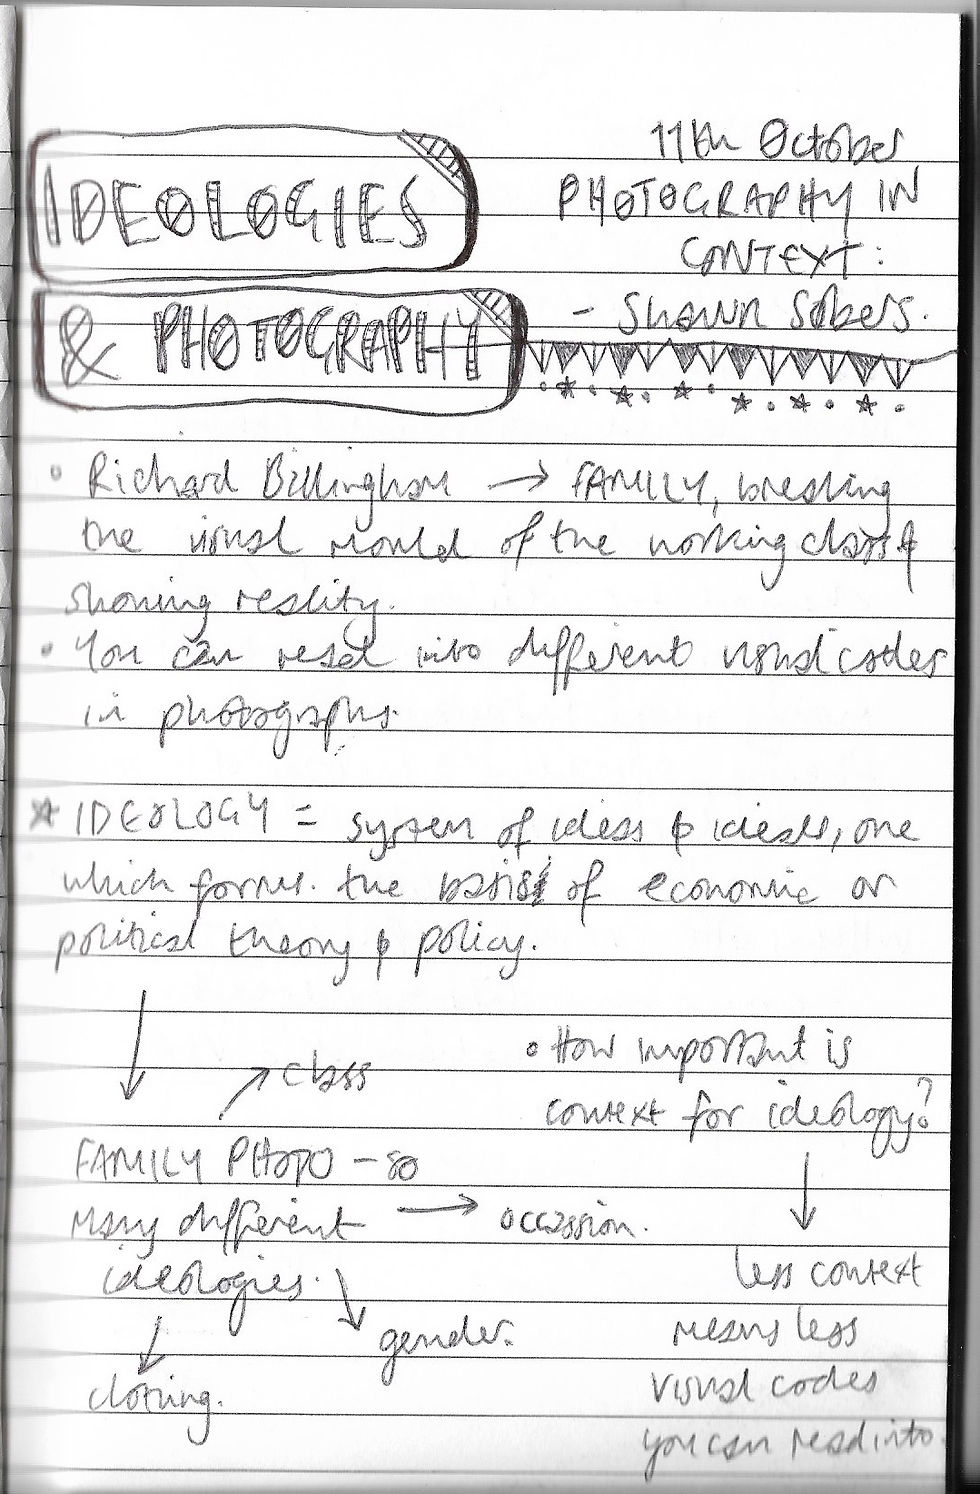 IDEOLOGIES
& PHOTOGRAPHY
11th October
PHOTOGRAPHY IN
CONTEXT:
- Shawn Sobers.
• Richard Billingham → FAMILY, breaking
the visual mould of the working class &
showing reality.
• You can read into different visual codes
in photographs.
* IDEOLOGY = system of ideas & ideals, one
which forms the basis of economic or
political theory & policy.
↓
↗ class
FAMILY PHOTO - so
many different → occassion.
ideologies.
↘ gender.
↓
clothing.
• How important is
context for ideology?
↓
less context
means less
visual codes
you can read into.